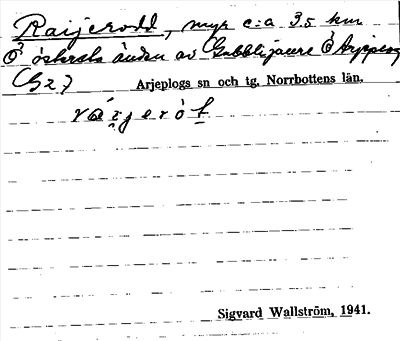 Raijerodd, myr c:a 3.5 km
Ö östersta änden av Gubblijaure Ö Arjeplog
G 2 7 Arjeplogs sn och tg, Norrbottens län.
rájjeròt
Sigvard Wallström, 1941.